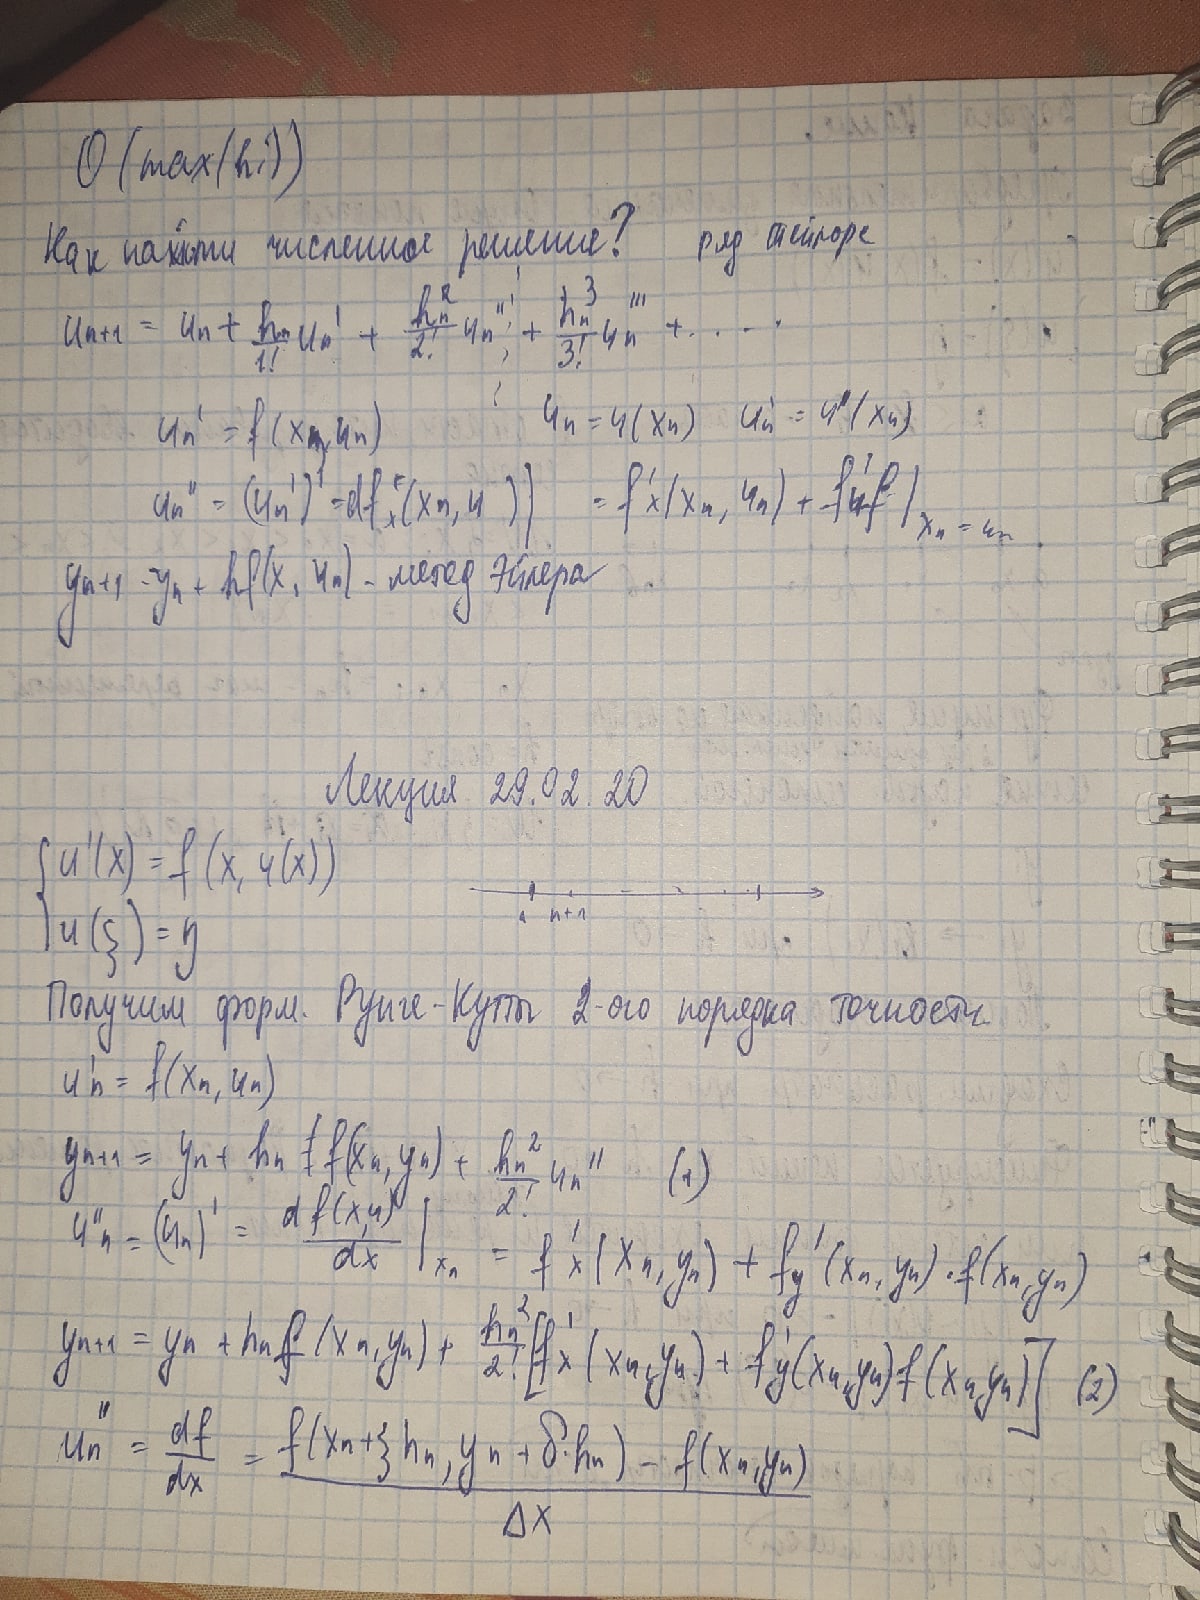 O(max(hi))
Как найти численное решение? ряд тейлора
u_{n+1} = u_n + \frac{h_n}{1!} u_n' + \frac{h_n^2}{2!} u_n'' + \frac{h_n^3}{3!} u_n''' + ....
u_n' = f(x_n, u_n) u_n = u(x_n) u_n' = u'(x_n)
u_n'' = (u_n')' = df_x'(x_n, u )| = f'_x(x_n, u_n) + f'_u f |_{x_n = u_n}
y_{n+1} = y_n + hf(x, u_n) - метод Эйлера
Лекция 29.02.20
{ u'(x) = f(x, u(x))
u(ξ) = y
n+1
Получим форм. Рунге-Кутты 2-ого порядка точности
u'_n = f(x_n, u_n)
y_{n+1} = y_n + h_n f(x_n, y_n) + \frac{h_n^2}{2!} u_n'' (1)
u''_n = (u_n)' = \frac{d f(x,u)}{dx} |_{x_n} = f'_x(x_n, y_n) + f_y'(x_n, y_n) · f(x_n, y_n)
y_{n+1} = y_n + h_n f(x_n, y_n) + \frac{h_n^2}{2!} [f'_x(x_n, y_n) + f'_y(x_n, y_n) f(x_n, y_n)] (2)
u_n'' = \frac{df}{dx} = \frac{f(x_n + ξ h_n, y_n + δ·h_n) - f(x_n, y_n)}{Δx}